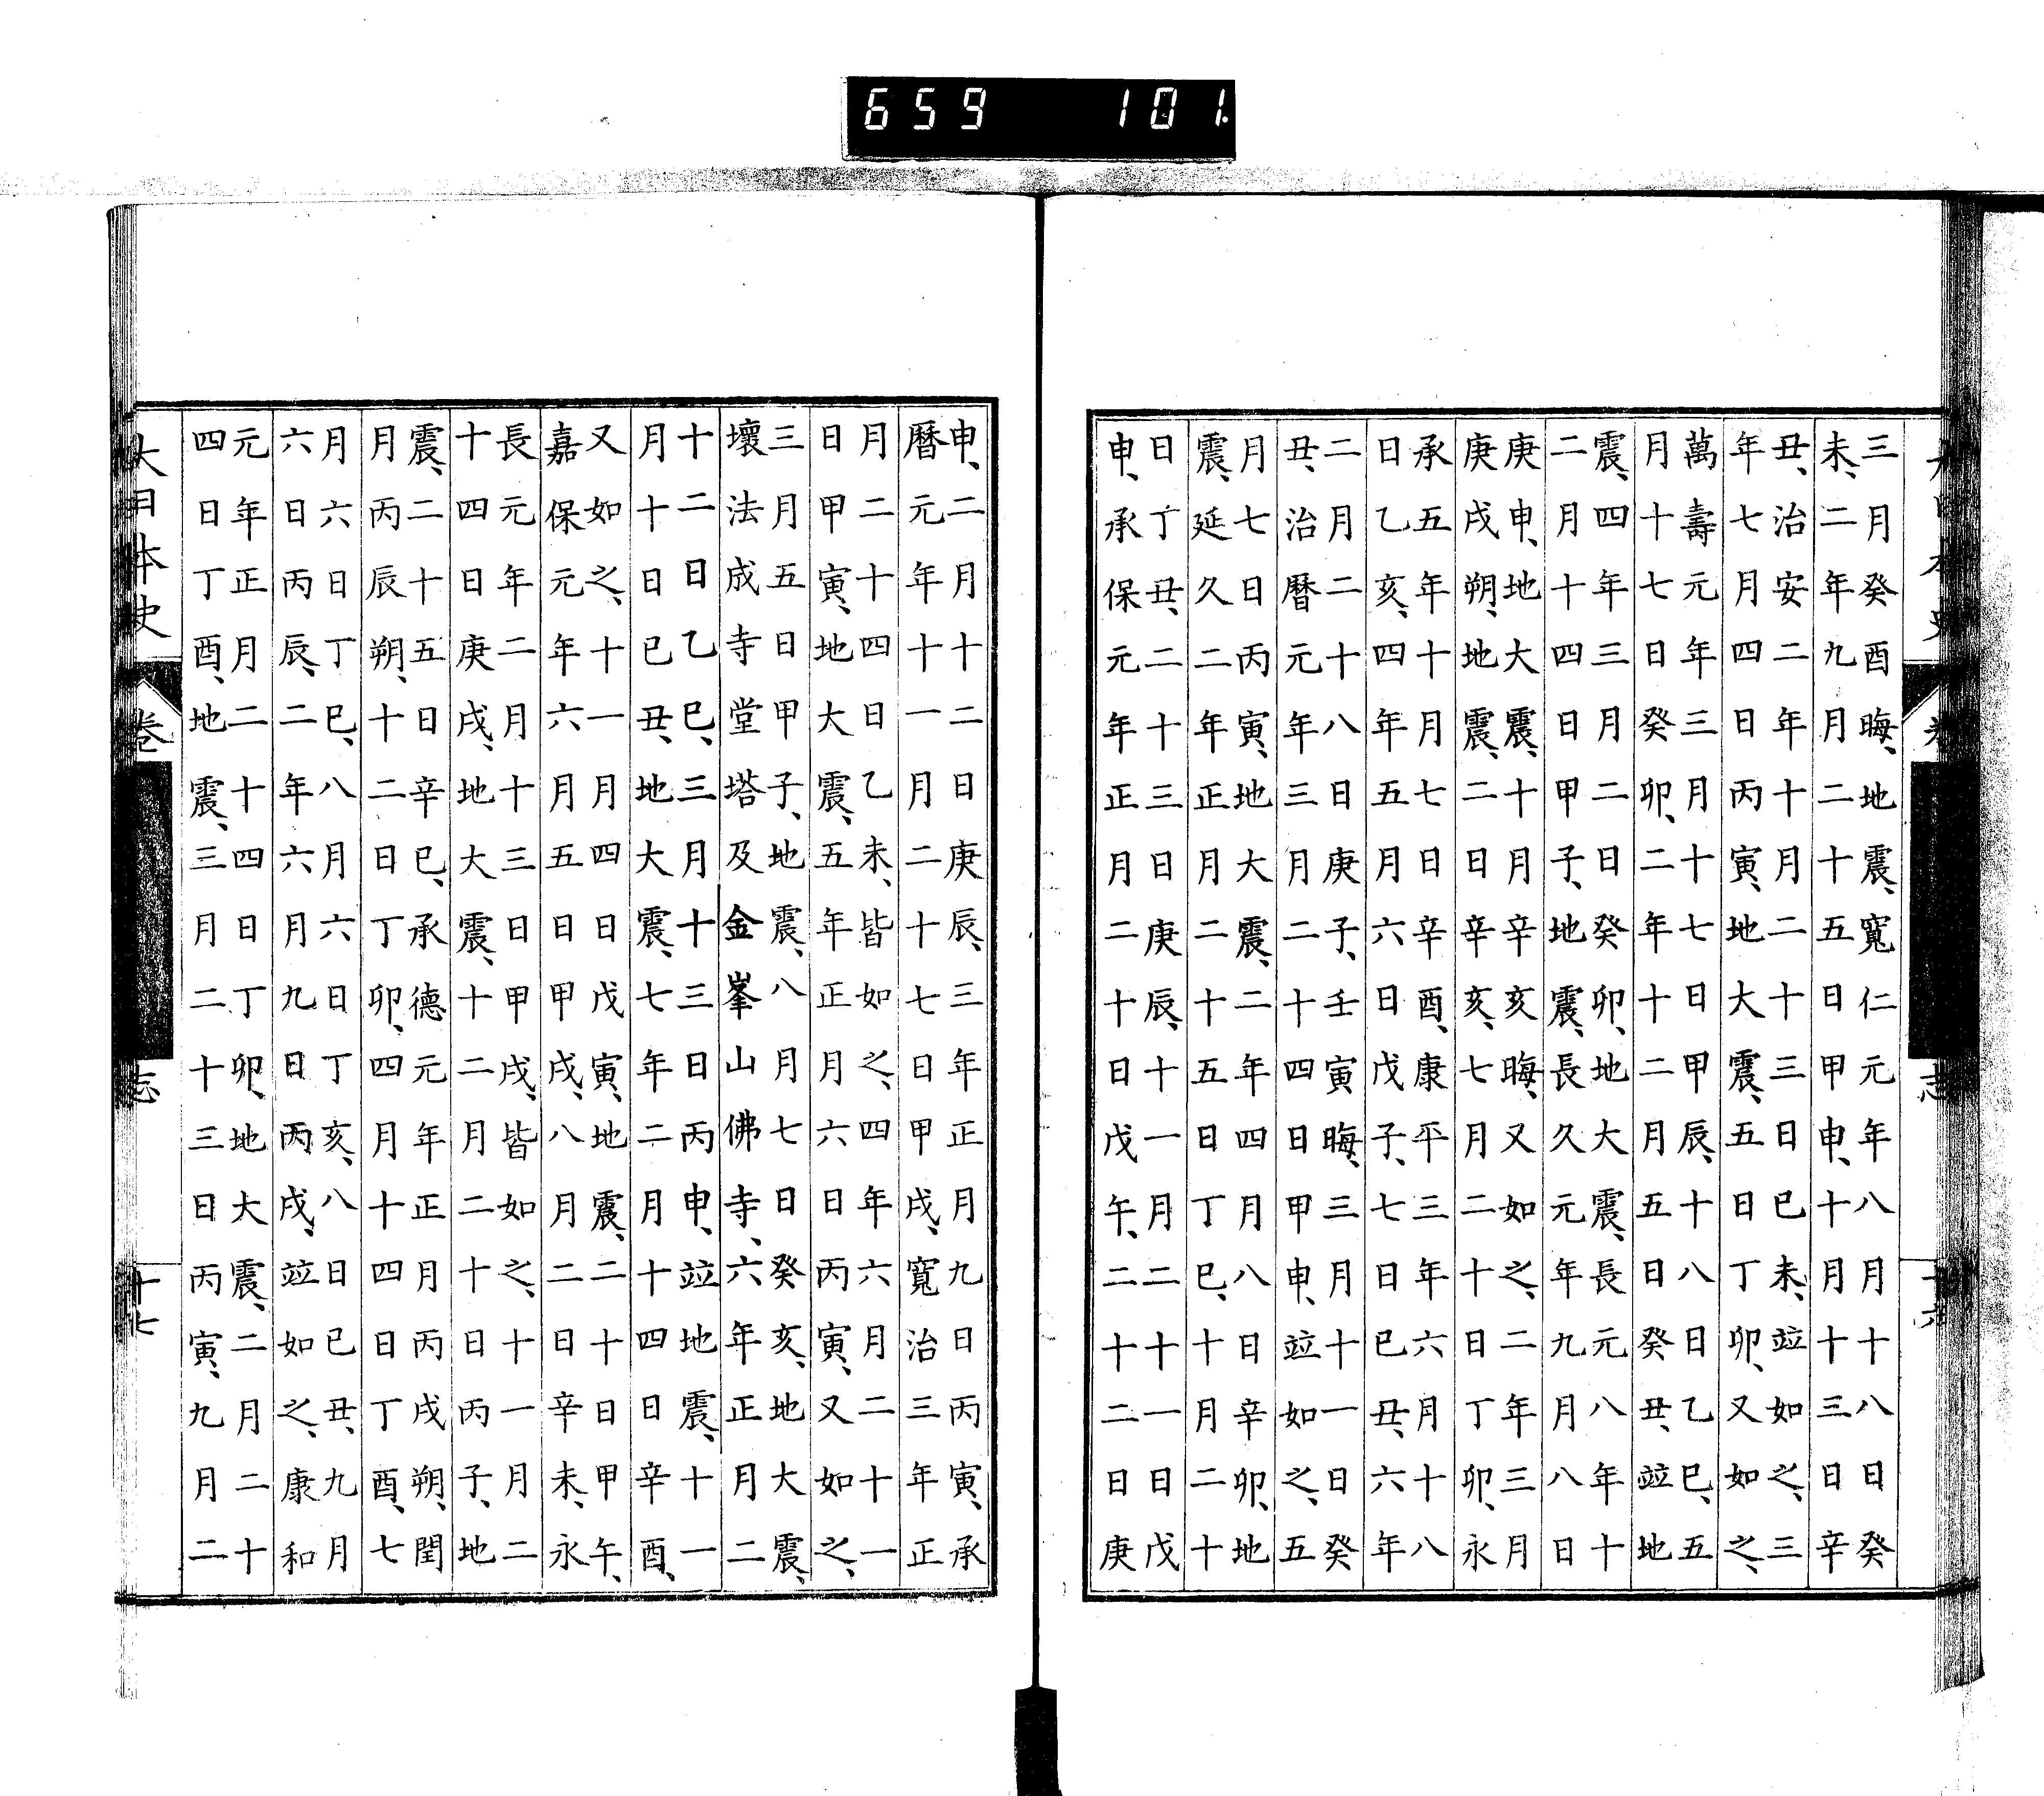 659 101
三月癸酉晦、地震、寬仁元年八月十八日癸
未、二年九月二十五日甲申、十月十三日辛
丑、治安二年十月二十三日己未、竝如之、三
年七月四日丙寅、地大震、五日丁卯、又如之、
萬壽元年三月十七日甲辰、十八日乙巳、五
月十七日癸卯、二年十二月五日癸丑、竝地
震、四年三月二日癸卯、地大震、長元八年十
二月十四日甲子、地震、長久元年九月八日
庚申、地大震、十月辛亥晦、又如之、二年三月
庚戌朔、地震、二日辛亥、七月二十日丁卯、永
承五年十月七日辛酉、康平三年六月十八
日乙亥、四年五月六日戊子、七日己丑、六年
二月二十八日庚子、壬寅晦、三月十一日癸
丑、治曆元年三月二十四日甲申、竝如之、五
月七日丙寅、地大震、二年四月八日辛卯、地
震、延久二年正月二十五日丁巳、十月二十
日丁丑、二十三日庚辰、十一月二十一日戊
申、承保元年正月二十日戊午、二十二日庚
申、二月十二日庚辰、三年正月九日丙寅、承
曆元年十一月二十七日甲戌、寬治三年正
月二十四日乙未、皆如之、四年六月二十一
日甲寅、地大震、五年正月六日丙寅、又如之、
三月五日甲子、地震、八月七日癸亥、地大震、
壞法成寺堂塔及金峯山佛寺、六年正月二
十二日乙巳、三月十三日丙申、竝地震、十一
月十日己丑、地大震、七年二月十四日辛酉、
又如之、十一月四日戊寅、地震、二十日甲午、
嘉保元年六月五日甲戌、八月二日辛未、永
長元年二月十三日甲戌、皆如之、十一月二
十四日庚戌、地大震、十二月二十日丙子、地
震、二十五日辛巳、承德元年正月丙戌朔、閏
月丙辰朔、十二日丁卯、四月十四日丁酉、七
月六日丁巳、八月六日丁亥、八日己丑、九月
六日丙辰、二年六月九日丙戌、竝如之、康和
元年正月二十四日丁卯、地大震、二月二十
四日丁酉、地震、三月二十三日丙寅、九月二
大日本史 卷 志 十七